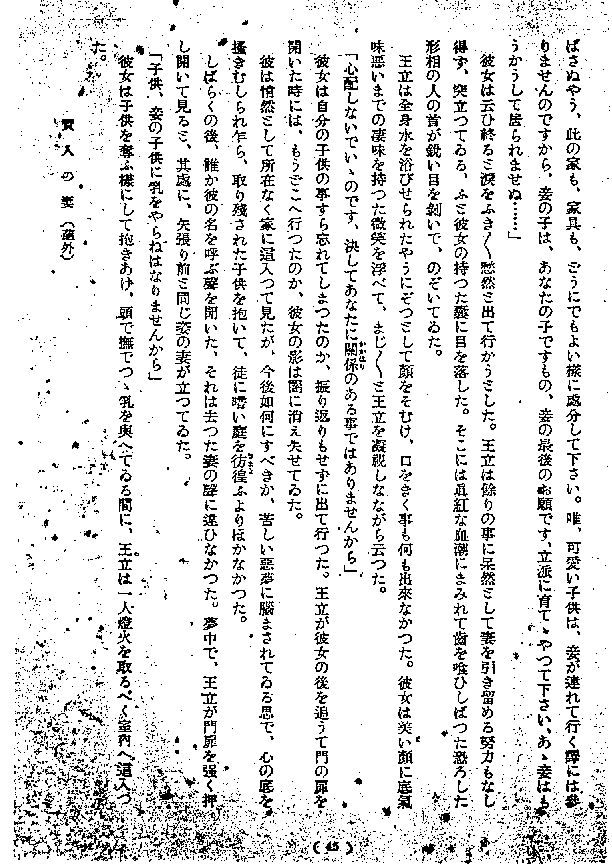 ばさぬやう、此の家も、家具も、どうにでもよい様に處分して下さい。唯、可愛い子供は、妾が連れて行く譯には參
りませんのですから、妾の子は、あなたの子ですもの、妾の最後のお願です、立派に育てゝやつて下さい、あゝ妾はも
うかうして居られませぬ……」
彼女は云ひ終るミ涙をふき〱愁然ミ出て行かうミした。王立は餘りの事に呆然ミして妻を引き留める努力もなし
得ず、突立つてゐる、ふミ彼女の持つた嚢に目を落した。そこには眞紅な血潮にまみれて齒を喰ひしばつた恐ろした
形相の人の首が鋭い目を剝いで、のぞいてゐた。
王立は全身水を浴びせられたやうにぞつミして顏をそむけ、口をきく事も何も出來なかつた。彼女は美い顏に底氣
味惡いまでの凄味を持つた微笑を浮べて、まじ〱ミ王立を凝視しながら云つた。
「心配しないでいゝのです、決してあなたに關係のある事ではありませんから」
彼女は自分の子供の事すら忘れてしまつたのか、振り返りもせずに出て行つた。王立が彼女の後を追うて門の扉を
開いた時には、もうどこへ行つたのか、彼女の影は闇に消え失せてゐた。
彼は悄然ミして所在なく家に這入つて見たが、今後如何にすべきか、苦しい惡夢に腦まされてゐる思で、心の底を
搔きむしられ乍ら、取り殘された子供を抱いて、徒に暗い庭を彷徨ふよりほかなかつた。
しばらくの後、誰か彼の名を呼ぶ聲を聞いた、それは去つた妻の聲に違ひなかつた。夢中で、王立が門扉を强く押
し開いて見るミ、其處に、矢張り前ミ同じ姿の妻が立つてゐた。
「子供、妾の子供に乳をやらねはなりませんから」
彼女は子供を奪ふ樣にして抱きあけ、頭で撫でつゝ乳を與へてゐる間に、王立は一人燈火を取るべく室内へ這入つ
た。
賈人の妻（畫外）
( 45 )